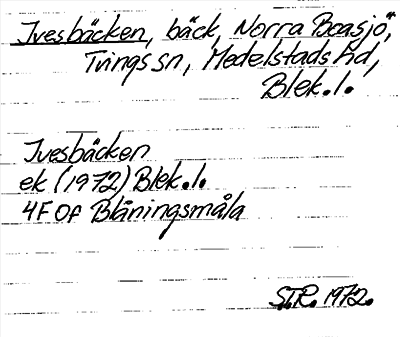 Ivesbäcken, bäck, Norra Boasjö,
Tvings sn, Medelstads hd,
Blek.l.
Ivesbäcken
ek (1972) Blek.l.
4F 0f Blåningsmåla
S.T.R. 1972.